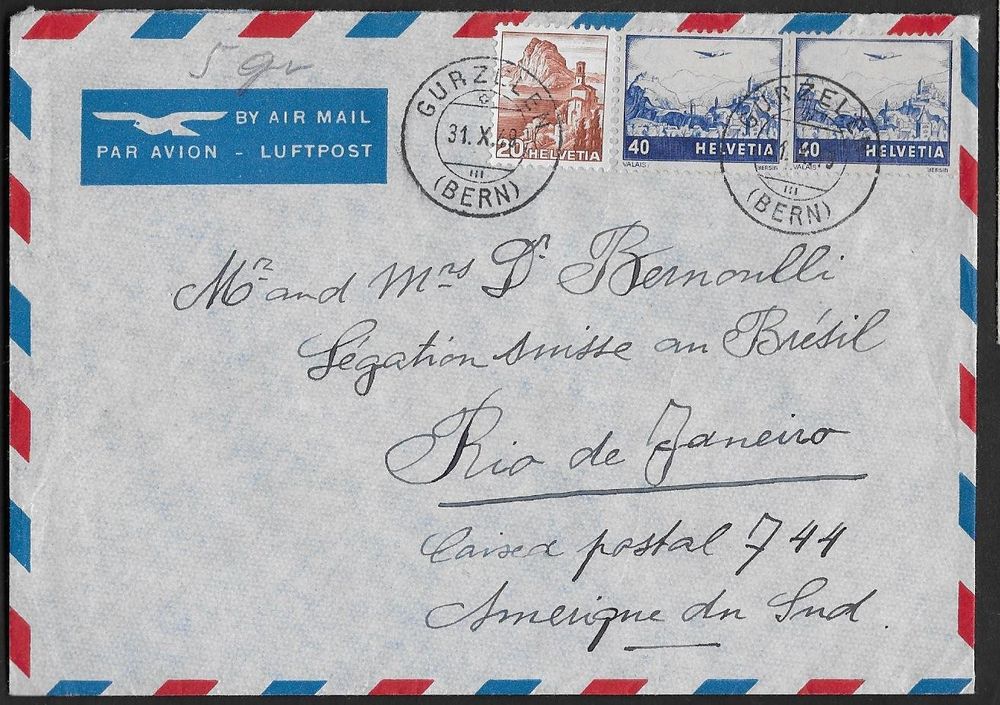 5 gr
BY AIR MAIL
PAR AVION - LUFTPOST
GURZELEN
31.X.49
III
(BERN)
20 HELVETIA
40 HELVETIA
VALAIS BERSIN
40 HELVETIA
VALAIS BERSIN
GURZELE
III
(BERN)
Mr and Mrs Dr Bernoulli
Légation suisse au Brésil
Rio de Janeiro
Caixa postal 744
Amerique du Sud.